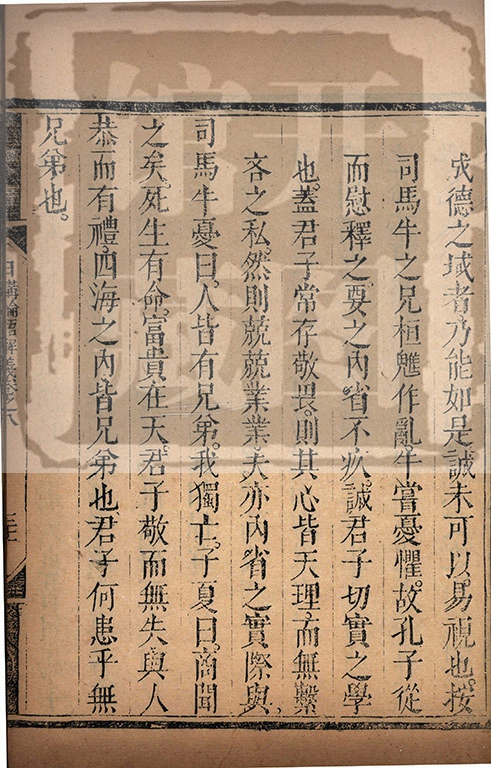 成德之域者乃能如是誠未可以易視也。按
司馬牛之兄桓魋作亂。牛嘗憂懼。故孔子從
而慰釋之。要之內省不疚。誠君子切實之學
也。蓋君子常存敬畏。則其心皆天理而無繫
吝之私。然則兢兢業業。夫亦內省之實際與。
司馬牛憂曰。人皆有兄弟。我獨亡。子夏曰。商聞
之矣。死生有命。富貴在天。君子敬而無失。與人
恭而有禮。四海之內皆兄弟也。君子何患乎無
兄弟也。
日講四書解義卷之八